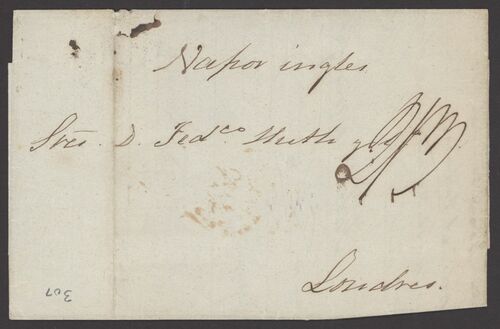 Vapor ingles
Sres. D. Fedco. Huth y
Londres.
307